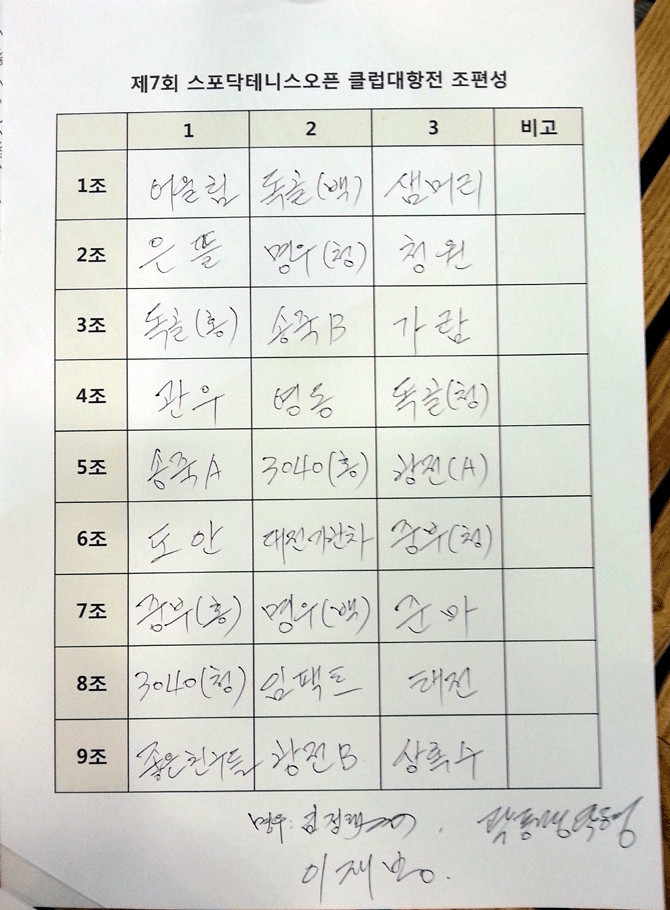 제7회 스포닥테니스오픈 클럽대항전 조편성
1 2 3 비고
1조 어울림 독골(백) 샘머리
2조 은뜰 명우(청) 청원
3조 독골(홍) 송죽B 가람
4조 관우 영동 독골(청)
5조 송죽A 3040(홍) 한전(A)
6조 도안 대전기관차 중부(청)
7조 중부(홍) 명우(백) 준마
8조 3040(청) 임팩트 대전
9조 좋은친구들 한전B 상록수
명우: 김정택
이재